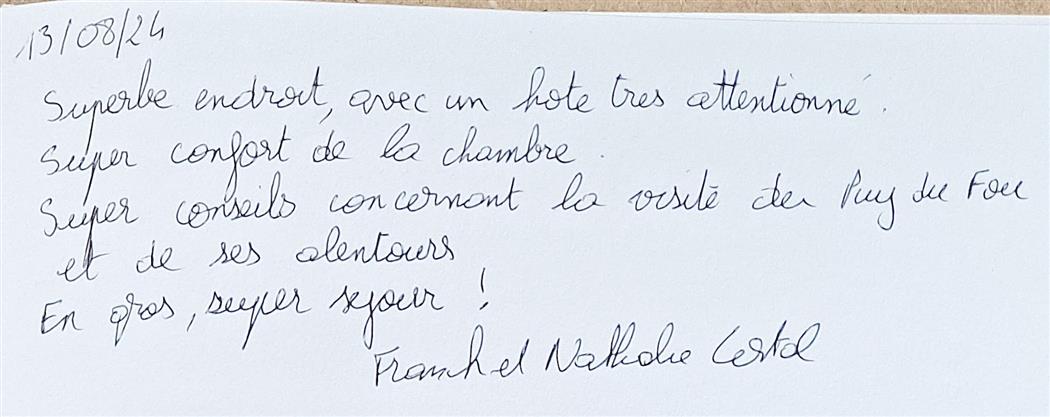 13/08/24
Superbe endroit, avec un hote tres attentionné.
Super confort de la chambre.
Super conseils concernant la visite du Puy du Fou
et de ses alentours
En gros, super sejour !
Franck et Nathalie